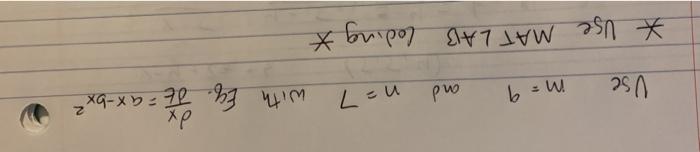 Use m = 6 and n = 7 with Eq. dx/dt = ax-bx²
* Use MATLAB Coding *